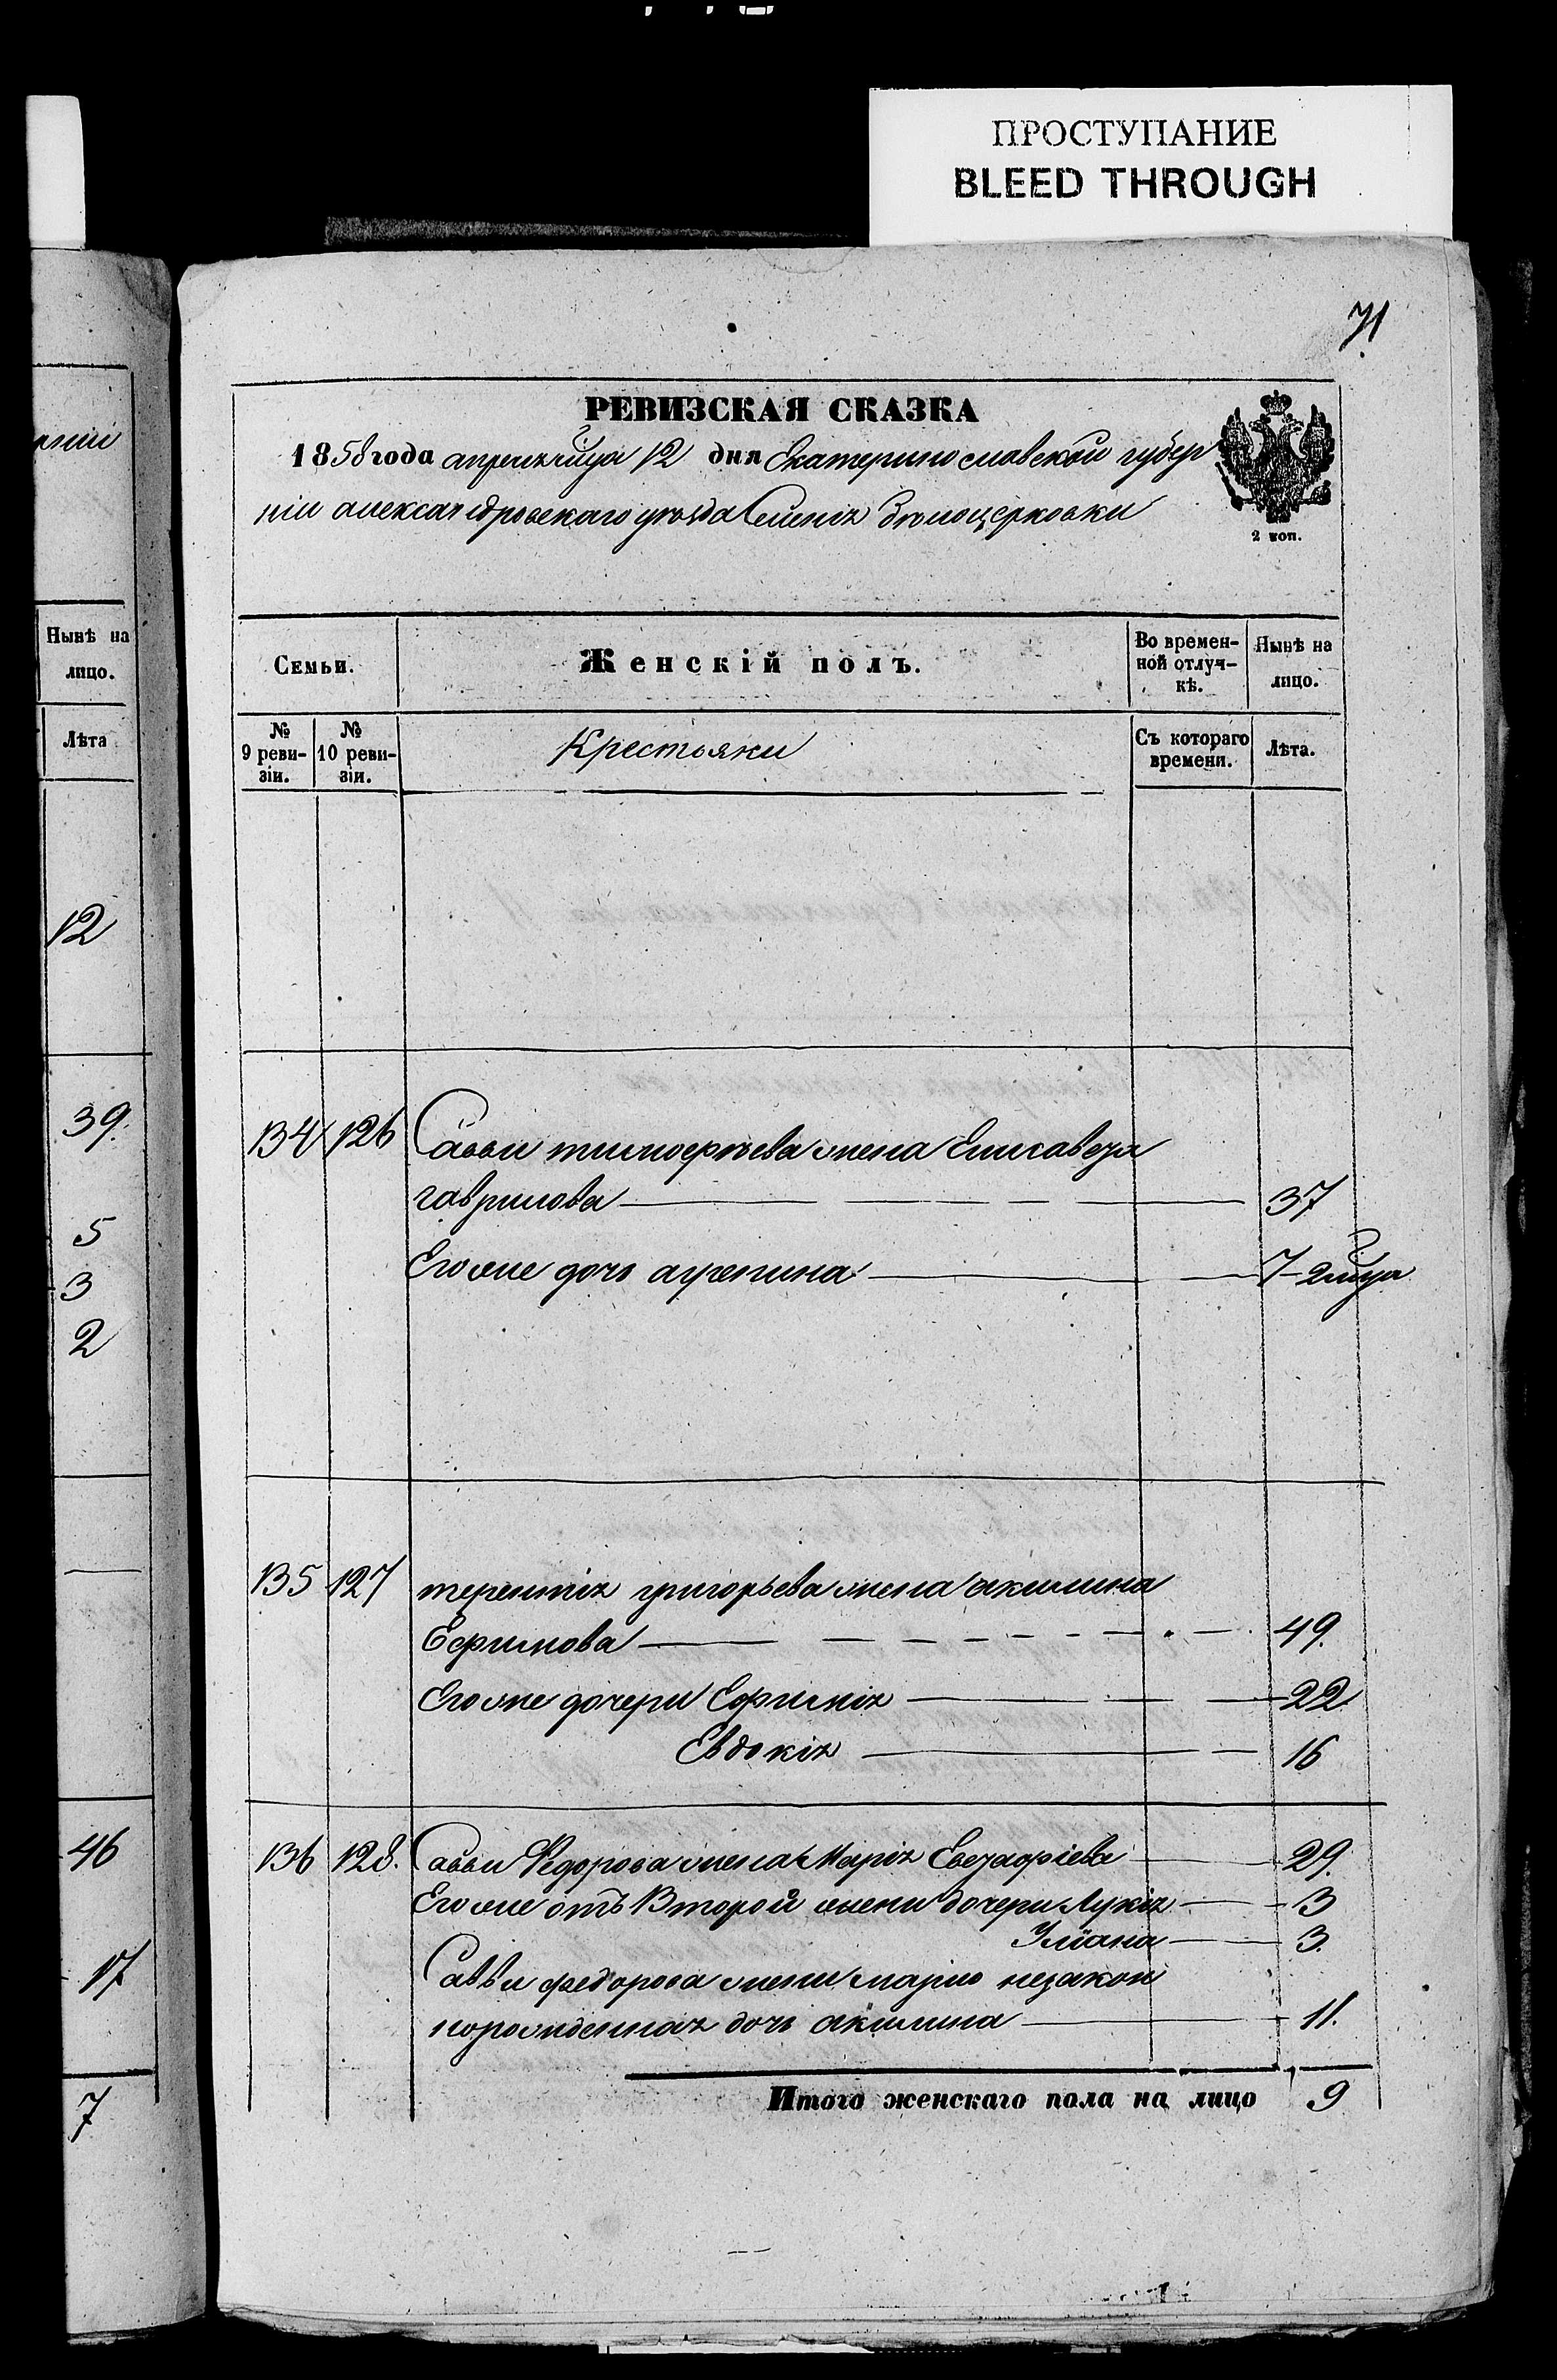 ПРОСТУПАНИЕ
BLEED THROUGH
71
РЕВИЗСКАЯ СКАЗКА
1858 года апреля мца 12 дня Екатеринославской губер
ніи александровскаго уѣзда Сменія бѣлоцерковки
2 коп.
Семьи.
Женскій полъ.
Во времен-
ной отлуч-
кѣ.
Нынѣ на
лицо.
№
9 реви-
зіи.
№
10 реви-
зіи.
Крестьяки
Съ котораго
времени.
Лѣта.
134 126 Саввы тимофѣева жена Елисавета
гаврилова 37
Его же дочь агрепина 7 2 мца
135 127 терентія григорьева жена акилина
Ефимова 49.
Его же дочери Ефимія 22
Евдокія 16
136 128. Саввы Федорова жена Марія Евстафіева 29.
Его же отъ Второй жены дочери Лукія 3
Уліана 3.
Саввы федорова жены марію незакон
норожденная дочь акилина 11.
Итого женскаго пола на лицо 9
Нынѣ на
лицо.
Лѣта
12
39.
5
3
2
46
17
7